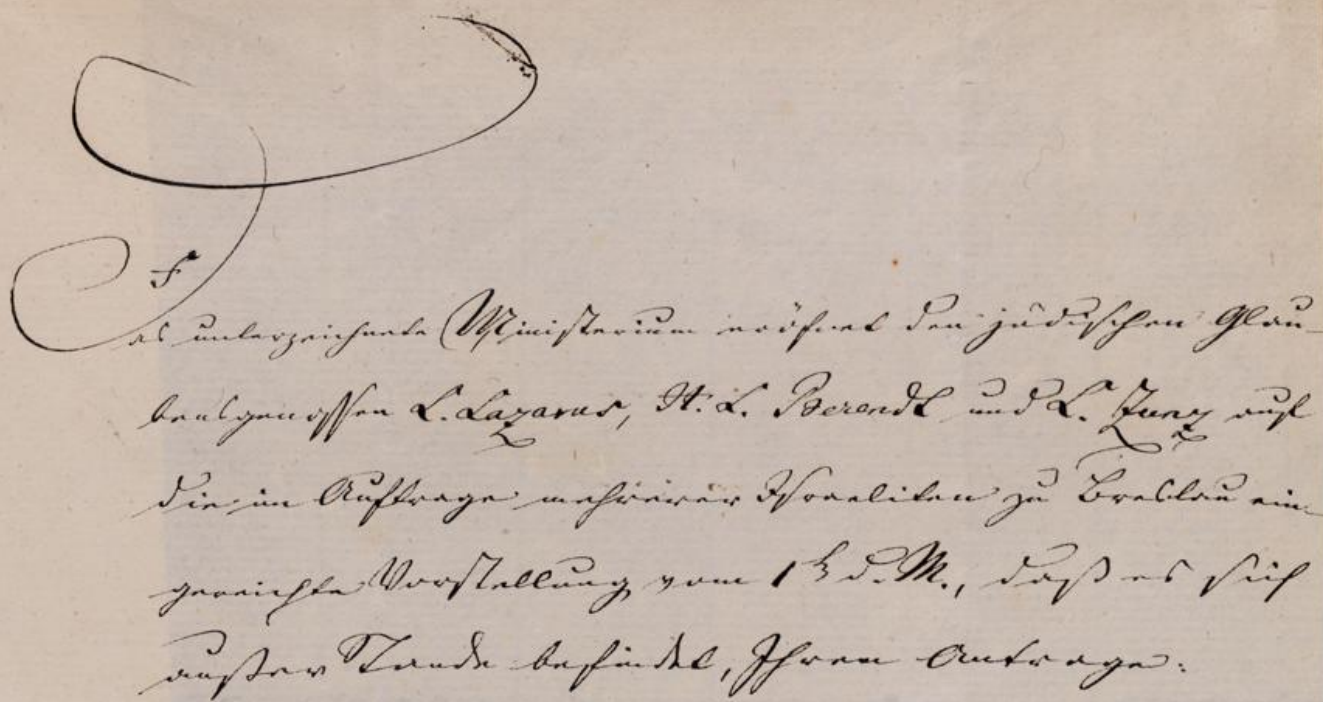 Das unterzeichnete Ministerium eröfnet den jüdischen Glau-
bensgenossen L. Lazarus, H. L. Berendt und L. Zunz auf
die im Auftrage mehrerer Israeliten zu Breslau ein-
gereichte Vorstellung vom 1 d. M., daß es sich
außer Stande befindet, Ihrem Antrage: